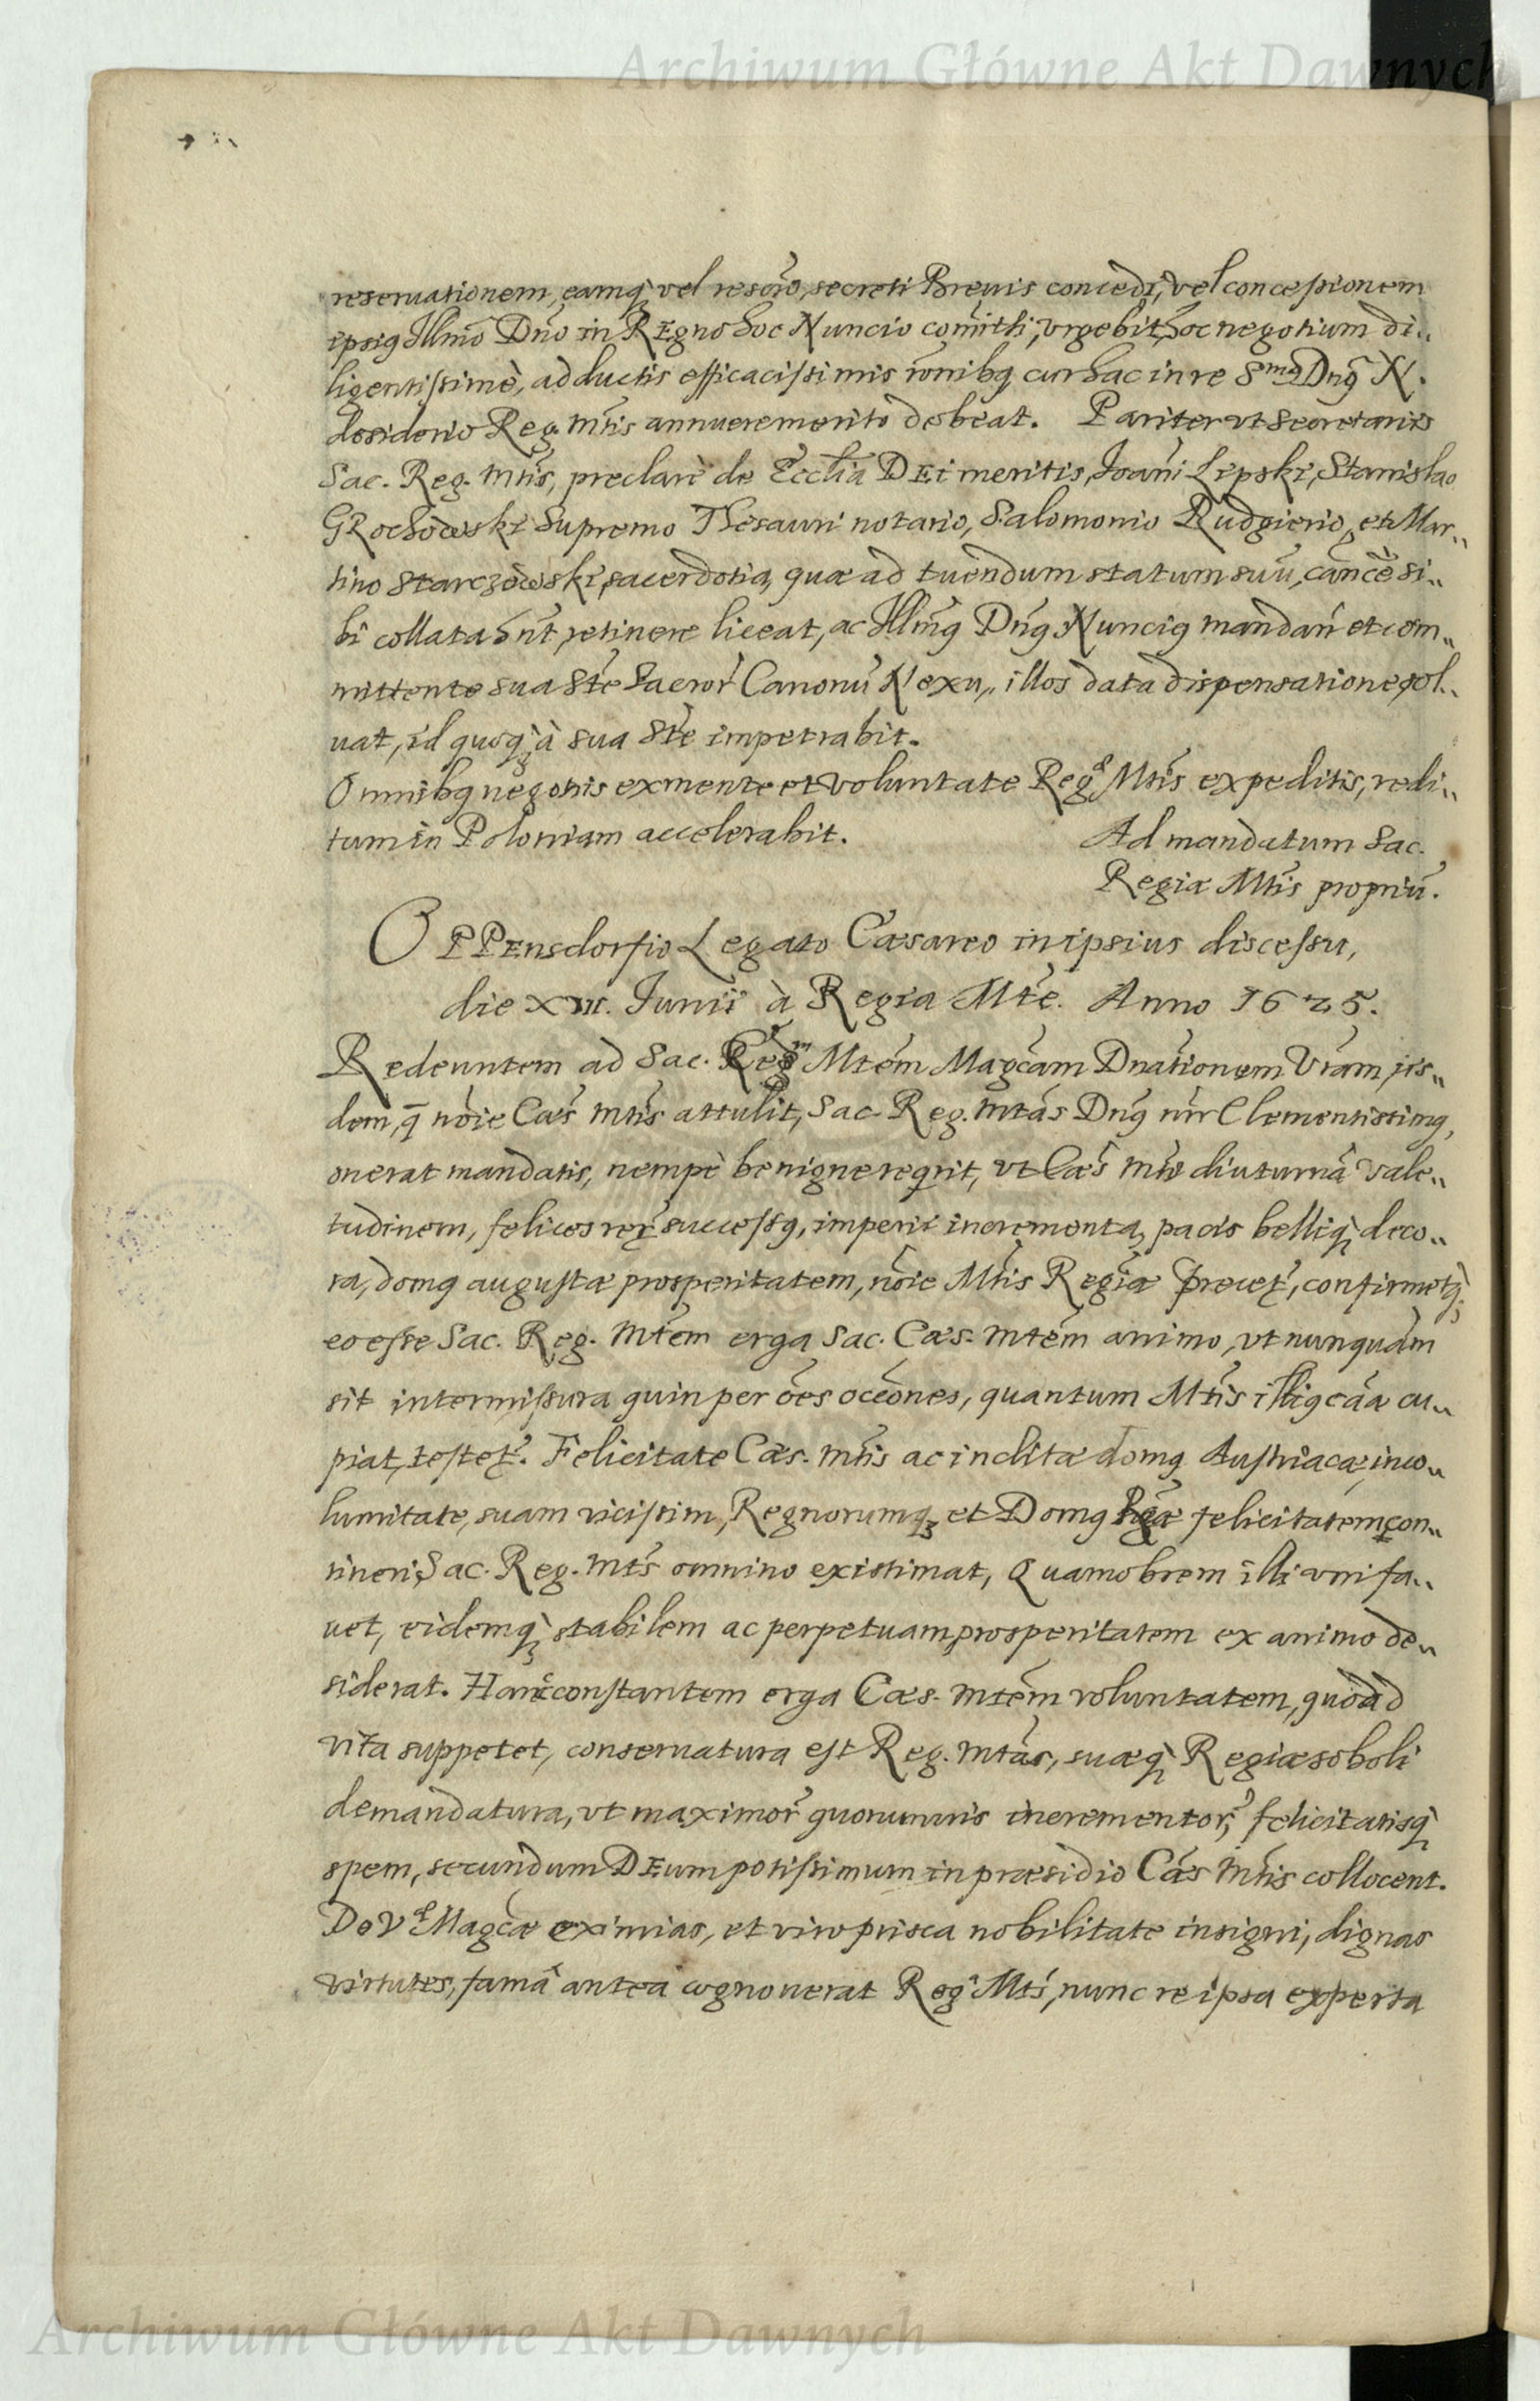 Archiwum Główne Akt Dawnych
reseruationem, eamq; vel rescrio, secreti Breuis concedi, vel concessionem
ipsiq Illmo Dno in REgno hoc Nuncio comitti, vrgebit hoc negotium di„
ligentissimè, adductis efficacissimis ronibq cur hac in re Smq Dnq N.
desiderio Reg. Mtis annuere merito debeat. Pariter vt Secretariis
Sac. Reg. Mtis, preclarè de Ecclia DEi meritis, Joani Lipski, Stanislao
GRochowski Supremo Thesauri notario, Salomonio Rudgierio, et Mar„
tino Starczewski, sacerdotia, quæ ad tuendum statum suu, canicè si„
bi collata snt, retinere liceat, ac Illmq Dnq Nunciq mandan et com„
mittente sua Ste Sacror Canonu Nexu„ illos data dispensatione sol„
uat, id quoq; à sua Ste impetrabit.
Omnibq negotiis ex mente et voluntate Reg Mtis expeditis, redi„
tum in Poloniam accelerabit. Ad mandatum Sac.
Regiæ Mtis propriu.
OPPEnsdorfio Legato Cæsareo in ipsius discessu,
die XIII. Junii à Regia Mte. Anno 1625.
Redeuntem ad Sac. Reg Mtem Magcam Dnationem Vram, iis„
dem, q noie Cæs Mtis attulit, Sac Reg. Mtas Dnq nr Clementissimq,
onerat mandatis, nempè benigne reqrit, vt Cæs Mti diuturnâ vale„
tudinem, felices rer successq, imperii incrementa, pacis belliq; deco„
ra, domq augustæ prosperitatem, noie Mtis Regiæ precet, confirmetq;
eo esse Sac. Reg. Mtem erga Sac. Cæs. Mtem animo, vt nunquàm
sit intermissura quin per oes occones, quantum Mtis illiq caa cu„
piat, testet. Felicitate Cæs. Mtis ac inclitæ domq Austriacæ inco„
lumitate, suam vicissim, Regnorumq; et Domq Rgæ felicitatem con„
tineri, Sac. Reg. Mts omnino existimat, Quamobrem illi vni fa„
uet, eidemq; stabilem ac perpetuam prosperitatem ex animo de„
siderat. Hanc constantem erga Cæs. Mtem voluntatem, quoad
vita suppetet, conseruatura est Reg. Mtas, suæq; Regiæ soboli
demandatura, vt maximor quorumuis incrementor, felicitatisq;
spem, secundum DEum potissimum in præsidio Cæs Mtis collocent.
De V Magcæ eximias, et viro prisca nobilitate insigni, dignas
virtutes, famâ antea cognouerat Reg Mts, nunc re ipsa experta
Archiwum Główne Akt Dawnych